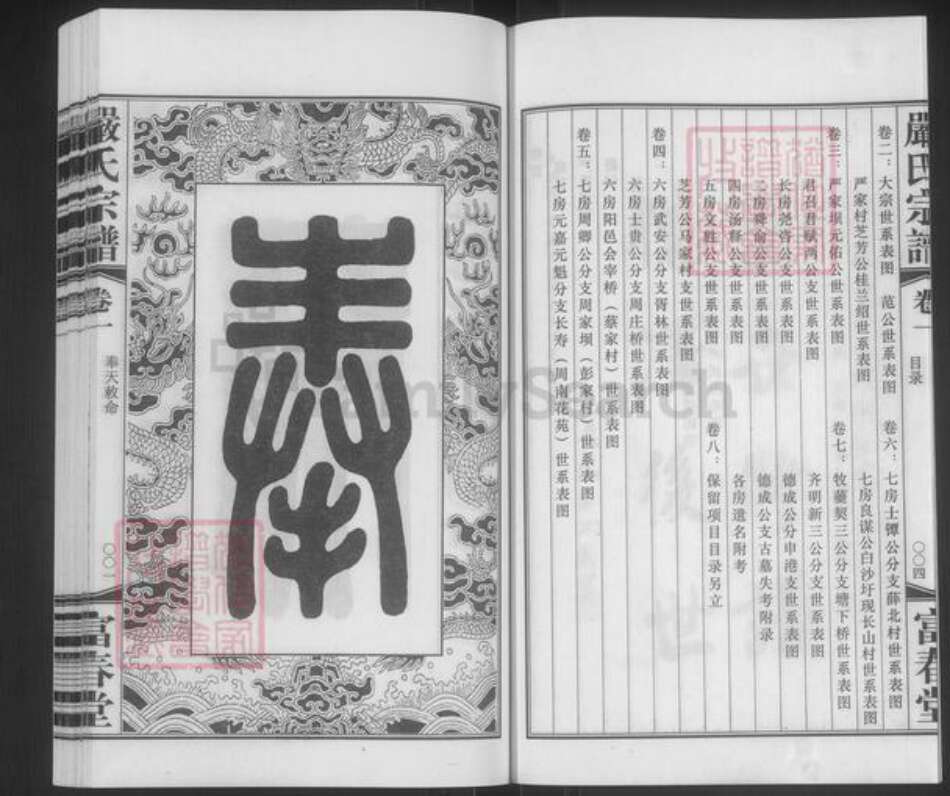 嚴氏宗譜
卷一
目录
〇〇四
富春堂
卷二：大宗世系表图 范公世系表图
严家村芝芳公桂兰绍世系表图
卷三：严家坝元佑公世系表图
君召君赋两公支世系表图
长房尧咨公支世系表图
二房舜俞公支世系表图
四房汤释公支世系表图
五房文胜公支世系表图
芝芳公马家村支世系表图
卷四：六房武安公分支胥林世系表图
六房士贵公分支周庄桥世系表图
六房阳邑会宰桥（蔡家村）世系表图
卷五：七房周卿公分支周家坝（彭家村）世系表图
七房元嘉元魁分支长寿（周南花苑）世系表图
卷六：七房士镡公分支薛北村世系表图
七房良谋公白沙圩现长山村世系表图
卷七：牧蘭契三公分支塘下桥世系表图
齐明新三公分支世系表图
德成公分申港支世系表图
德成公支古墓失考附录
各房遗名附考
卷八：保留项目目录另立
奉
嚴氏宗譜
卷一
奉天敕命
〇〇一
富春堂
FamilySearch